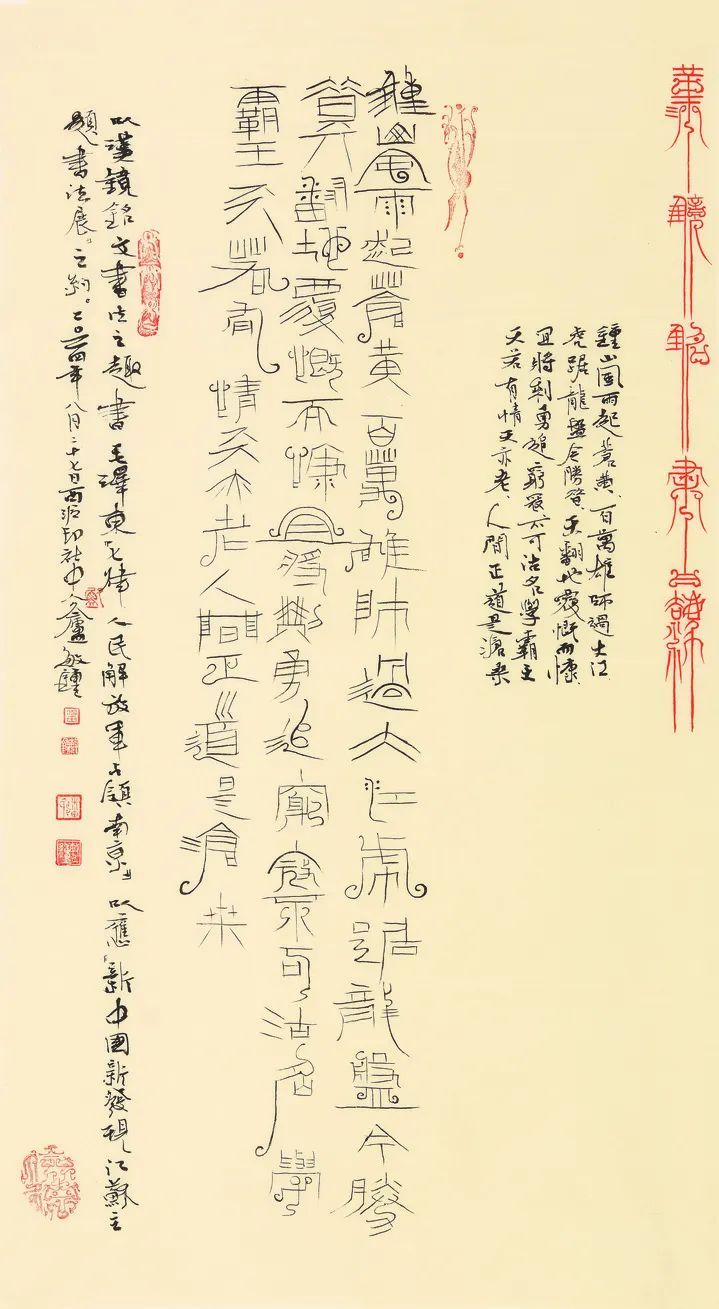 鍾山風雨起蒼黃、百萬雄師過大江
虎踞龍盤今勝昔、天翻地覆慨而慷
宜將剩勇追窮寇不可沽名學霸王
天若有情天亦老、人間正道是滄桑
鍾山風雨起蒼黃百萬雄師過大江虎踞龍盤今勝
昔天翻地覆慨而慷宜將剩勇追窮寇不可沽名學
霸王天若有情天亦老人間正道是滄桑
以漢鏡銘文書法之趣書毛澤東《七律人民解放軍占領南京》以應『新中國新發現江蘇主
題書法展』之約。二〇二四年八月二十七日西泠印社中人